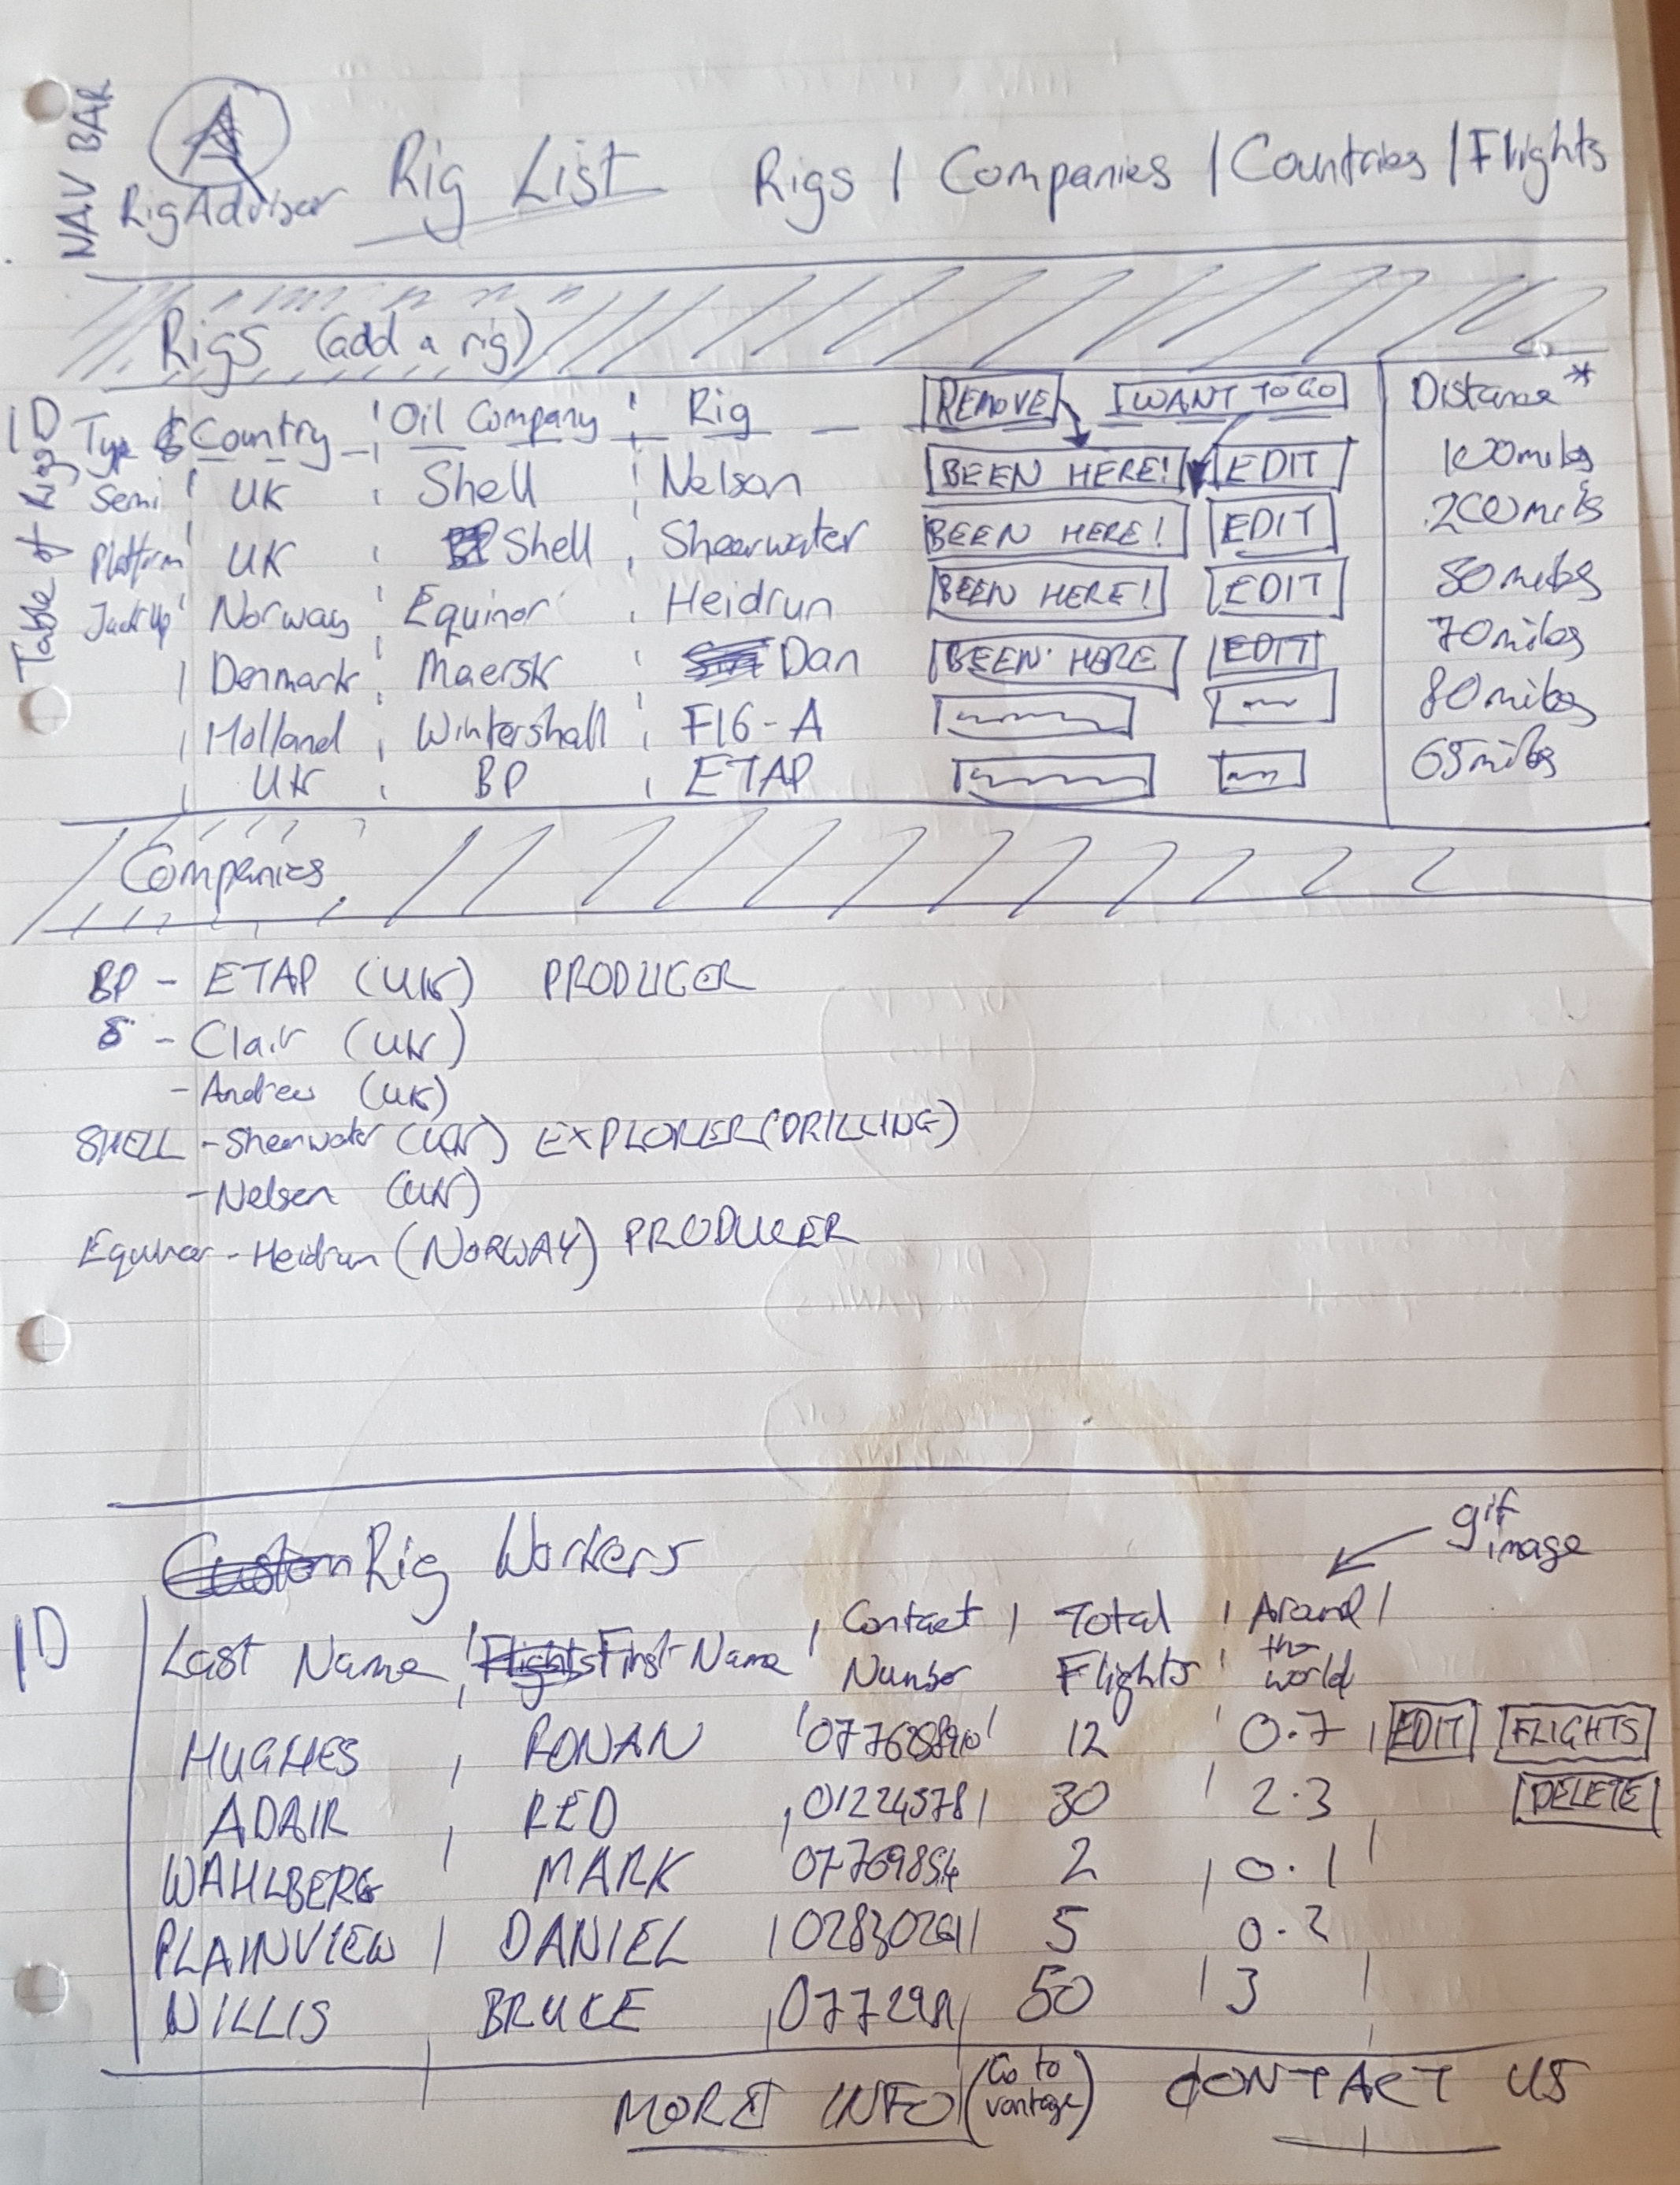 NAV BAR
RigAdvisor Rig List Rigs | Companies | Countries | Flights
Rigs (add a rig)
ID Type Country Oil Company Rig REMOVE I WANT TO GO Distance *
Table of Rigs
Semi UK Shell Nelson BEEN HERE! EDIT 100 miles
Platform UK Shell Shearwater BEEN HERE! EDIT 200 miles
Jack Up Norway Equinor Heidrun BEEN HERE! EDIT 80 miles
Denmark Maersk Dan BEEN HERE EDIT 70 miles
Holland Wintershall F16-A 80 miles
UK BP ETAP 65 miles
Companies
BP - ETAP (UK) PRODUCER
- Clair (UK)
- Andrew (UK)
SHELL - Shearwater (UK) EXPLORER (DRILLING)
- Nelson (UK)
Equinor - Heidrun (NORWAY) PRODUCER
gif image
Rig Workers
ID Last Name First Name Contact Number Total Flights Around the world
HUGHES RONAN 12 0.7 EDIT FLIGHTS
ADAIR RED 01224578 30 2.3 DELETE
WAHLBERG MARK 07769854 2 0.1
PLAINVIEW DANIEL 5 0.2
WILLIS BRUCE 50 3
MORE INFO (Go to vantage) CONTACT US